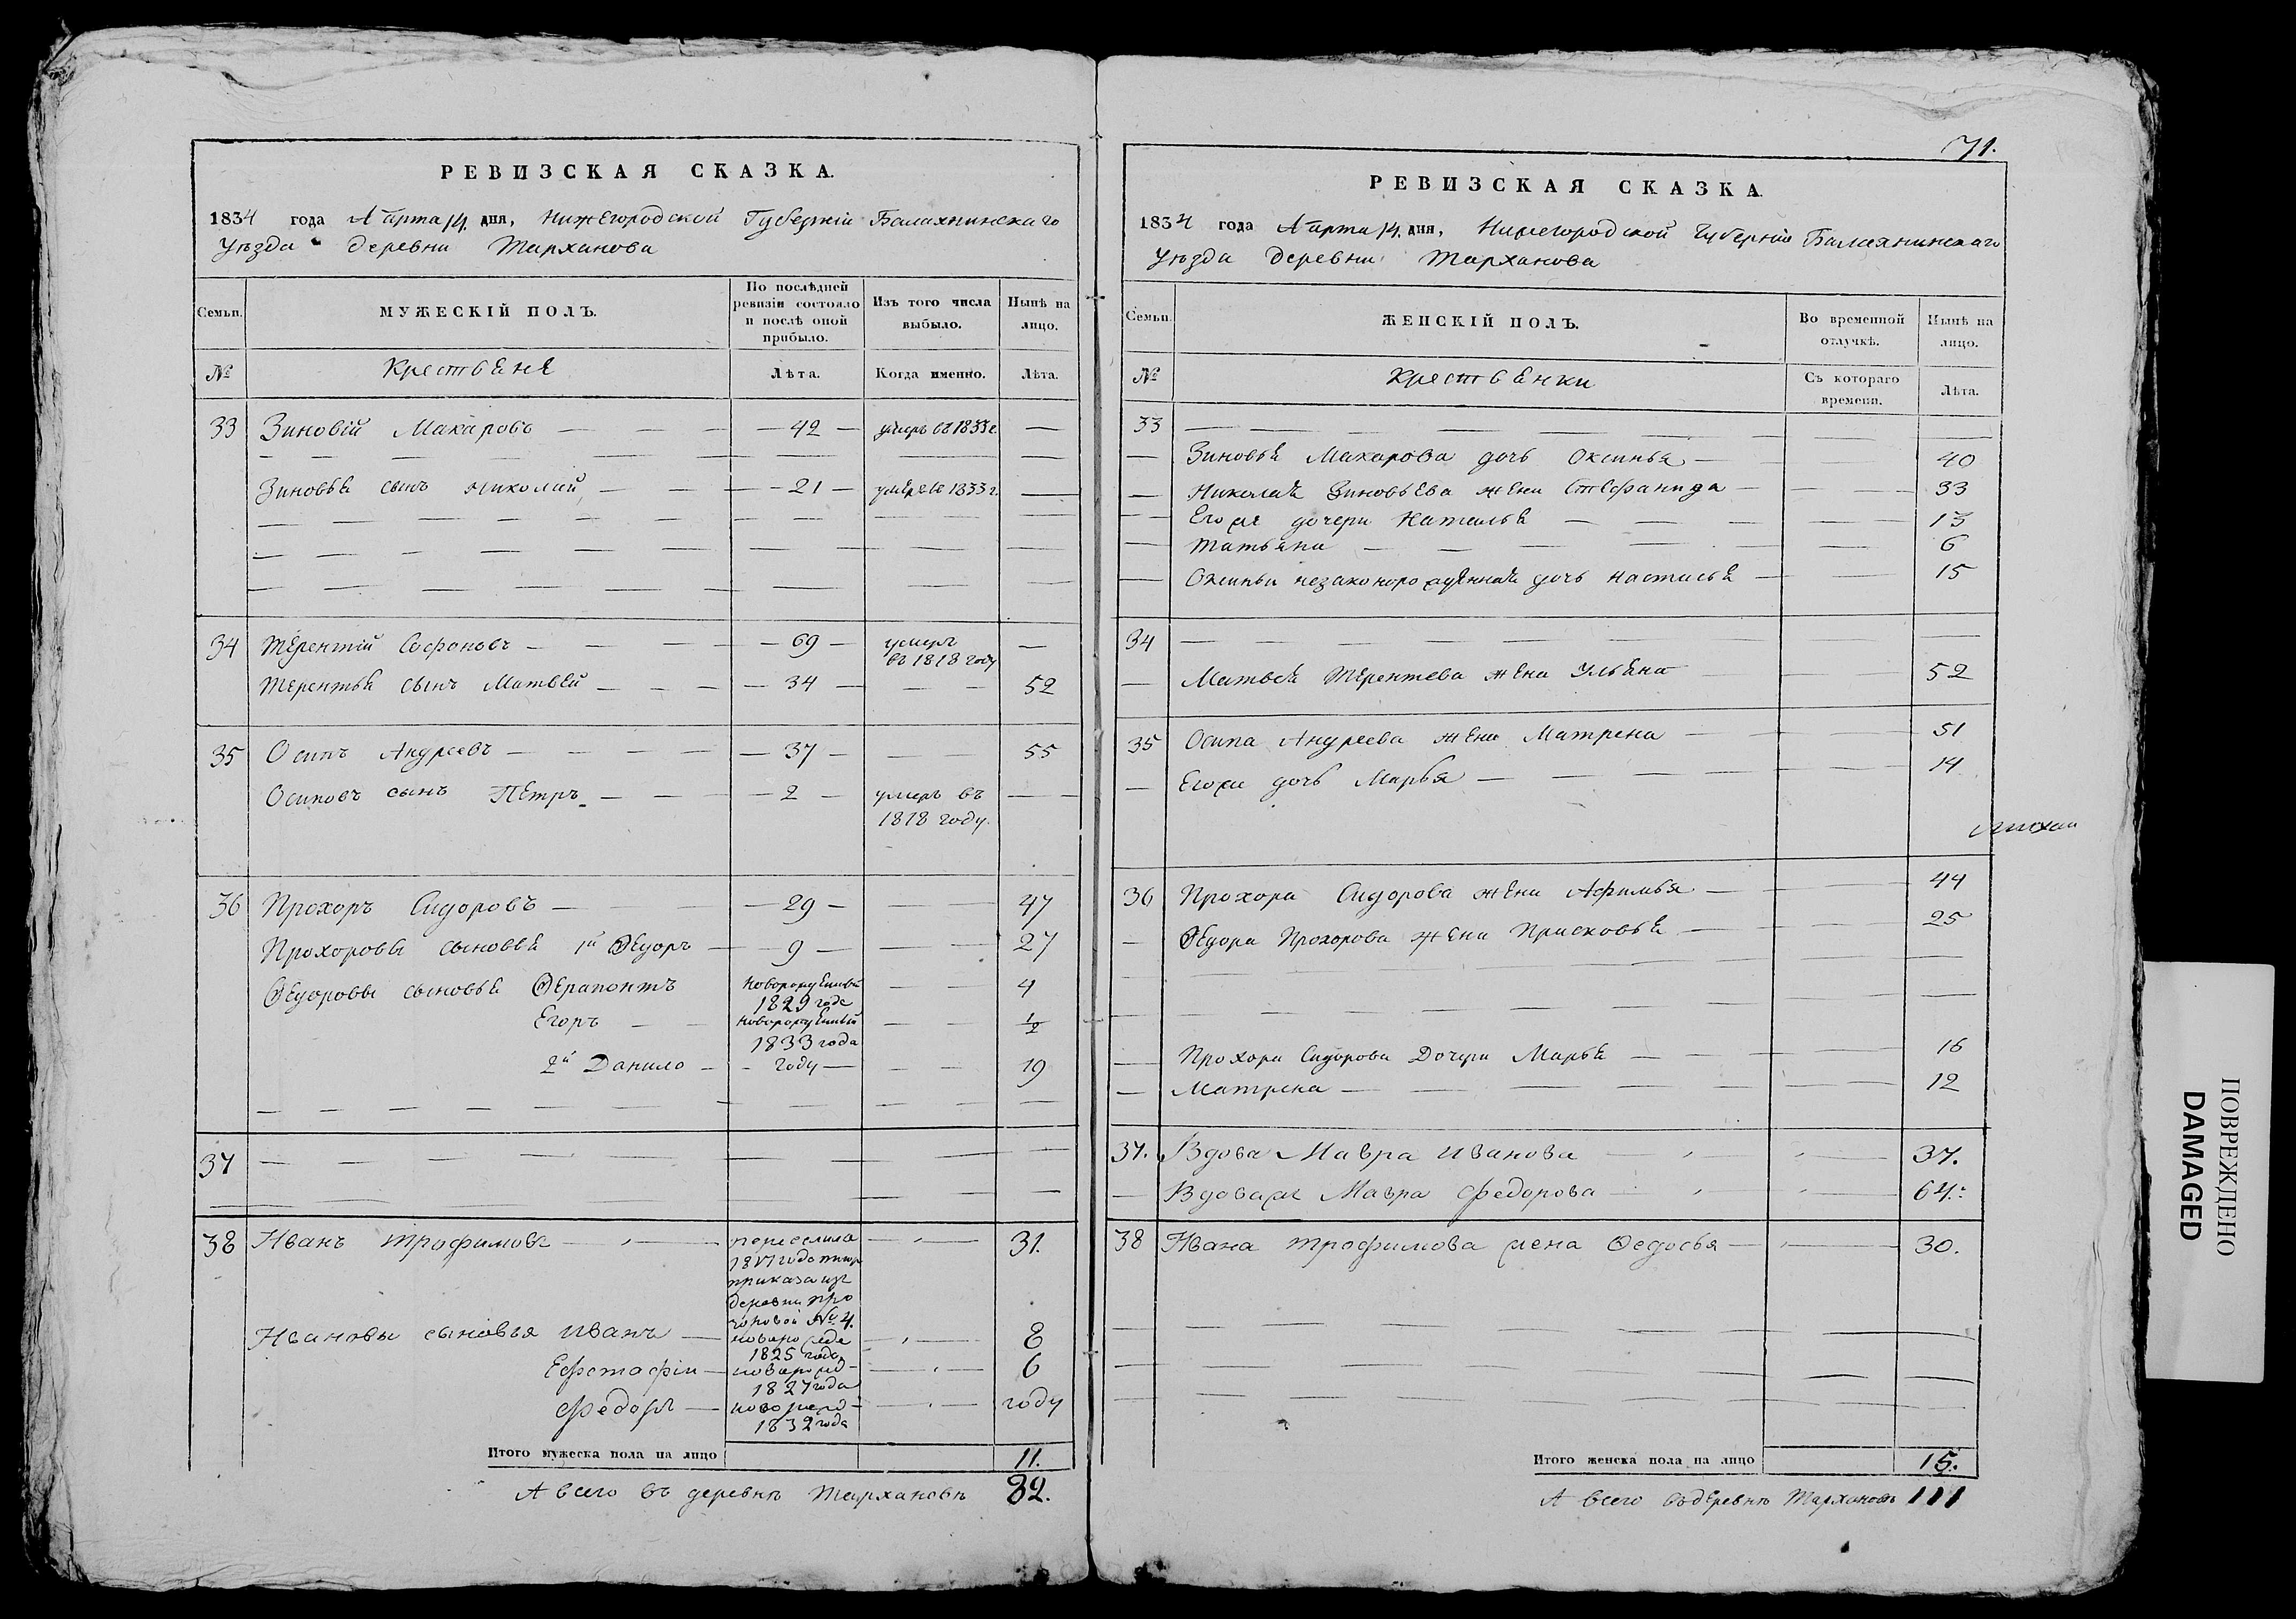 РЕВИЗСКАЯ СКАЗКА.
1834 года Марта 14 дня, Нижегородской Губернии Балахнинскаго
Уѣзда деревни Тарханова
Семьи. МУЖЕСКІЙ ПОЛЪ. По послѣдней ревизіи состояло и послѣ оной прибыло. Изъ того числа выбыло. Нынѣ на лицо.
№ Крестьяне Лѣта. Когда именно. Лѣта.
33 Зиновій Макаровъ — 42 — умеръ въ 1833 г. —
Зиновья сынъ Николай — 21 — умеръ въ 1833 г. —
34 Терентій Софоновъ — 69 — умеръ въ 1818 году —
Терентья сынъ Матвей — 34 — 52
35 Осипъ Андреевъ — 37 — 55
Осиповъ сынъ Петръ — 2 — умеръ въ 1818 году —
36 Прохоръ Сидоровъ — 29 — 47
Прохоровы сыновья 1й Федоръ — 9 — 27
Федоровы сыновья Ферапонтъ новорожденный 1829 года — 4
Егоръ — новорожденный 1833 года — ½
2й Данило — году — 19
37
38 Иванъ Трофимовъ — 31.
деревни
№ 4.
Ивановы сыновья Иванъ — 1825 года — 8
Ефстафіи — новорожд- 1827 года — 6
Федоръ — новорожд- 1832 года — году
Итого мужеска пола на лицо 11.
А всего въ деревнѣ Тархановѣ 32.
71.
РЕВИЗСКАЯ СКАЗКА
1834 года Марта 14 дня, Нижегородской Губерніи Балахнинскаго
Уѣзда деревни Тарханова
Семьи. ЖЕНСКІЙ ПОЛЪ. Во временной отлучкѣ. Нынѣ на лицо.
№ Крестьянки Съ котораго времени. Лѣта.
33
Зиновья Макарова дочь Оксинья — 40
Николая Зиновьева жена Стефанида — 33
Егоже дочери Наталья — 13
Татьяна — 6
Оксиньи незаконорожденная дочь Настасья — 15
34
Матвея Терентева жена Ульяна — 52
35 Осипа Андреева жена Матрена — 51
Егоже дочь Марья — 14
36 Прохора Сидорова жена Афимья — 44
Федора Прохорова жена Присковья — 25
Прохора Сидорова Дочери Марья — 16
Матрена — 12
37. Вдова Мавра Иванова 37.
Вдова же Мавра Федорова 64.
38 Ивана Трофимова жена Федосья — 30.
Итого женска пола на лицо 15.
А всего въ деревнѣ Тархановѣ 111
ПОВРЕЖДЕНО
DAMAGED